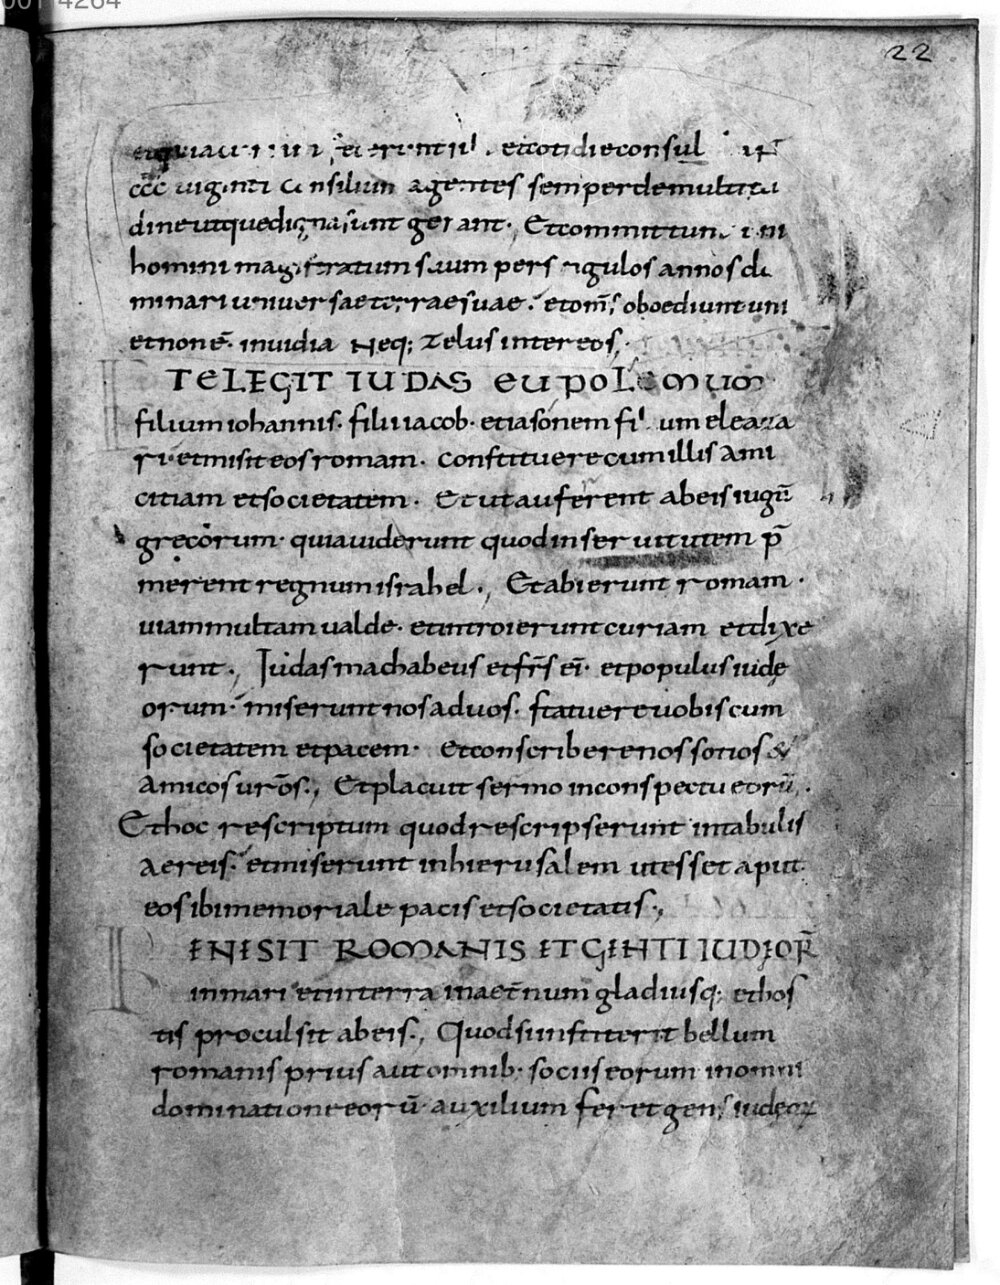 22
et cotidie consul
ccc uiginti consilium agentes semper de multitu
dine ut que digna sunt gerant. Et committunt uni
homini magistratum suum per singulos annos do
minari uniuersae terrae suae. et omš oboediunt uni
et non ē inuidia neq; zelus inter eos.,
T ELEGIT IUDAS EUPOLEMUM
filium iohannis. filii iacob. et iasonem filium eleaza
ri. et misit eos romam. constituere cum illis ami
citiam et societatem. Et ut auferent ab eis iugū
grecorum. quia uiderunt quod in seruitutem p̄
merent regnum israhel., Et abierunt romam.
uiam multam ualde. et introierunt curiam et dixe
runt., Iudas machabeus et frs̄ eī. et populus iudę
orum. miserunt nos ad uos. statuere uobiscum
societatem et pacem. et conscribere nos socios &
amicos urōs., Et placuit sermo in conspectu eorū.
Et hoc rescriptum quod rescripserunt in tabulis
aereis. et miserunt in hierusalem ut esset aput
eos ibi memoriale pacis et societatis.,
B ENE SIT ROMANIS ET GENTI IUDĘOR̄
in mari et in terra in aet̄num gladiusq; et hos
tis procul sit ab eis., Quod si institerit bellum
romanis prius aut omnib. sociis eorum in omni
dominatione eorū. auxilium feret gens iudęoꝝ